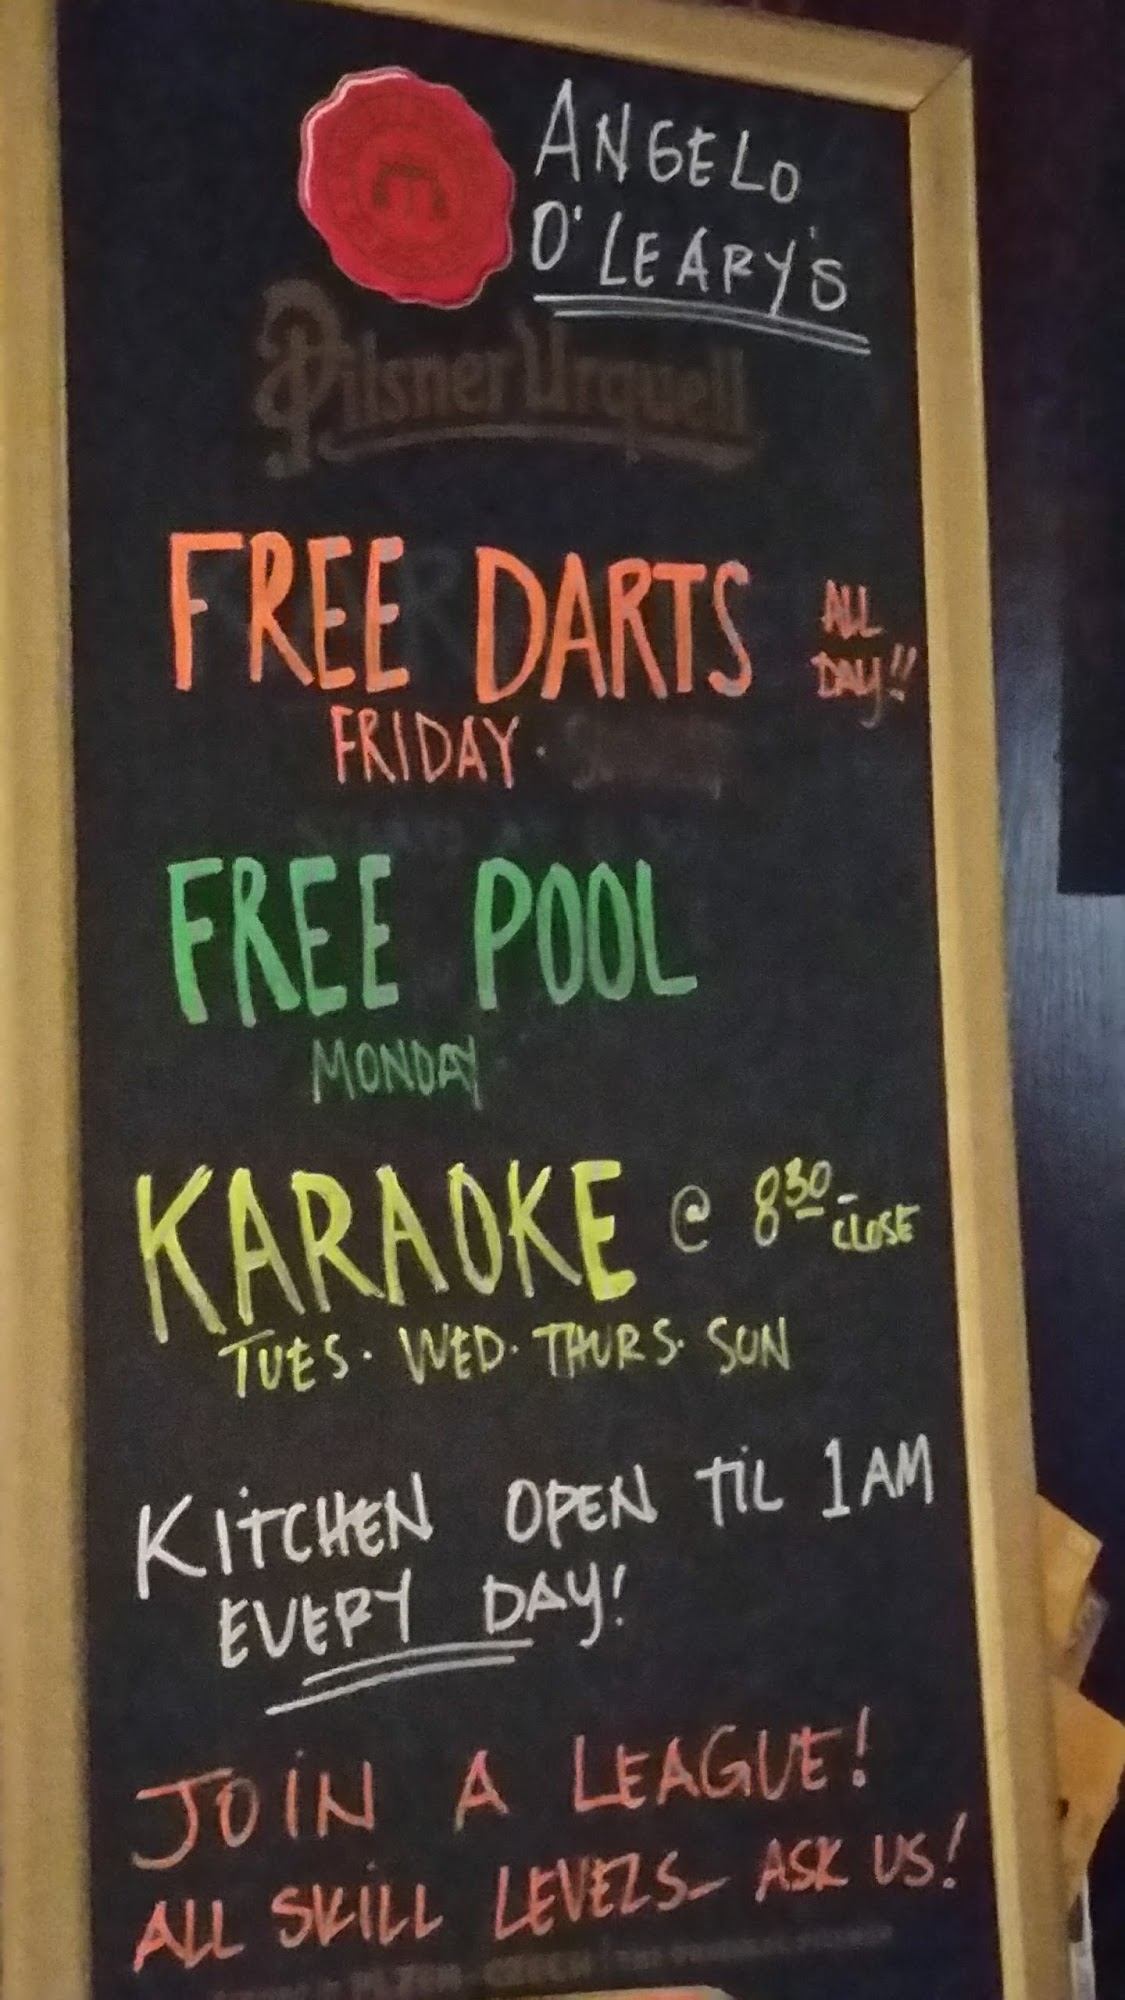 ANGELO
O'LEARY'S
Pilsner Urquell
FREE DARTS ALL
DAY!!
FRIDAY.
FREE POOL
MONDAY
KARAOKE @ 8 30 - CLOSE
TUES. WED. THURS. SUN
KITCHEN OPEN TIL 1 AM
EVERY DAY!
JOIN A LEAGUE!
ALL SKILL LEVELS- ASK US!